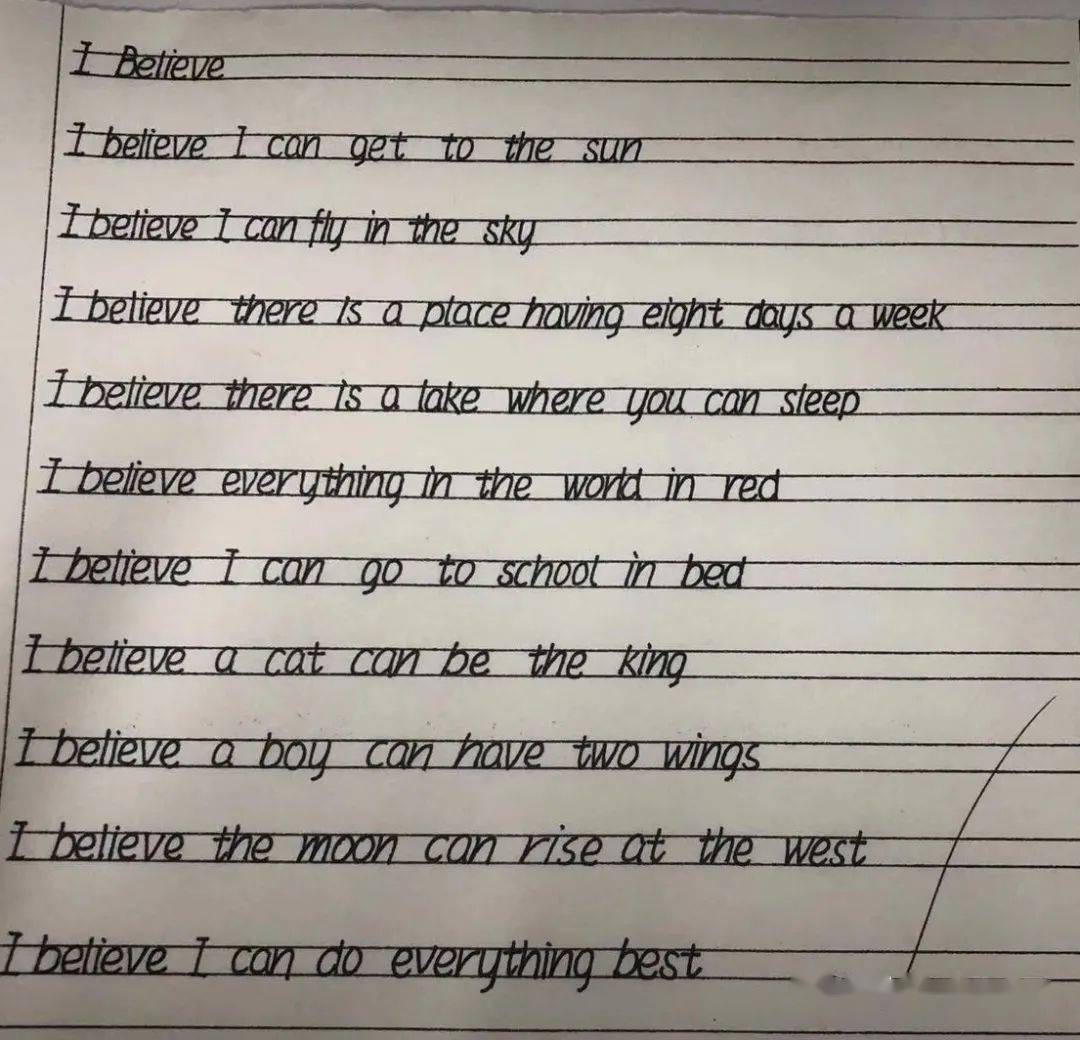 I Believe
I believe I can get to the sun
I believe I can fly in the sky
I believe there is a place having eight days a week
I believe there is a lake where you can sleep
I believe everything in the world in red
I believe I can go to school in bed
I believe a cat can be the king
I believe a boy can have two wings
I believe the moon can rise at the west
I believe I can do everything best